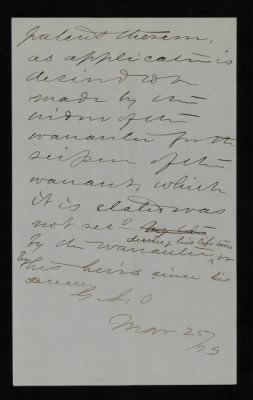 patent therein,
as application is
desired to be
made by the
widow of the
warrantee for the
reissue of the
warrant, which
it is stated was
not rec^d by the
during his life time
by the warrantee, or
by his heirs since his
decease
G. L. O
Mar 25/75